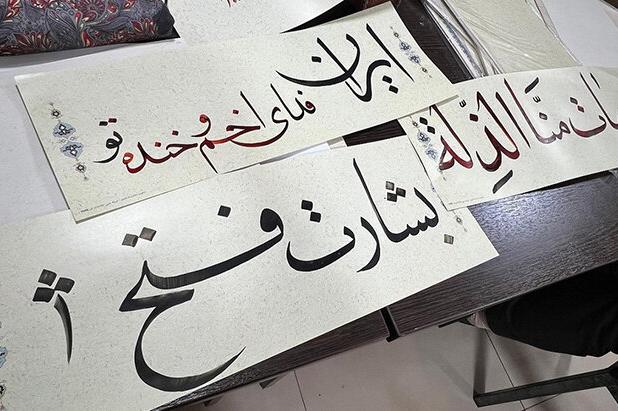 ایران
فدای اخم و خنده تو
ات منَّا الذِلَّة
بشارت فتح